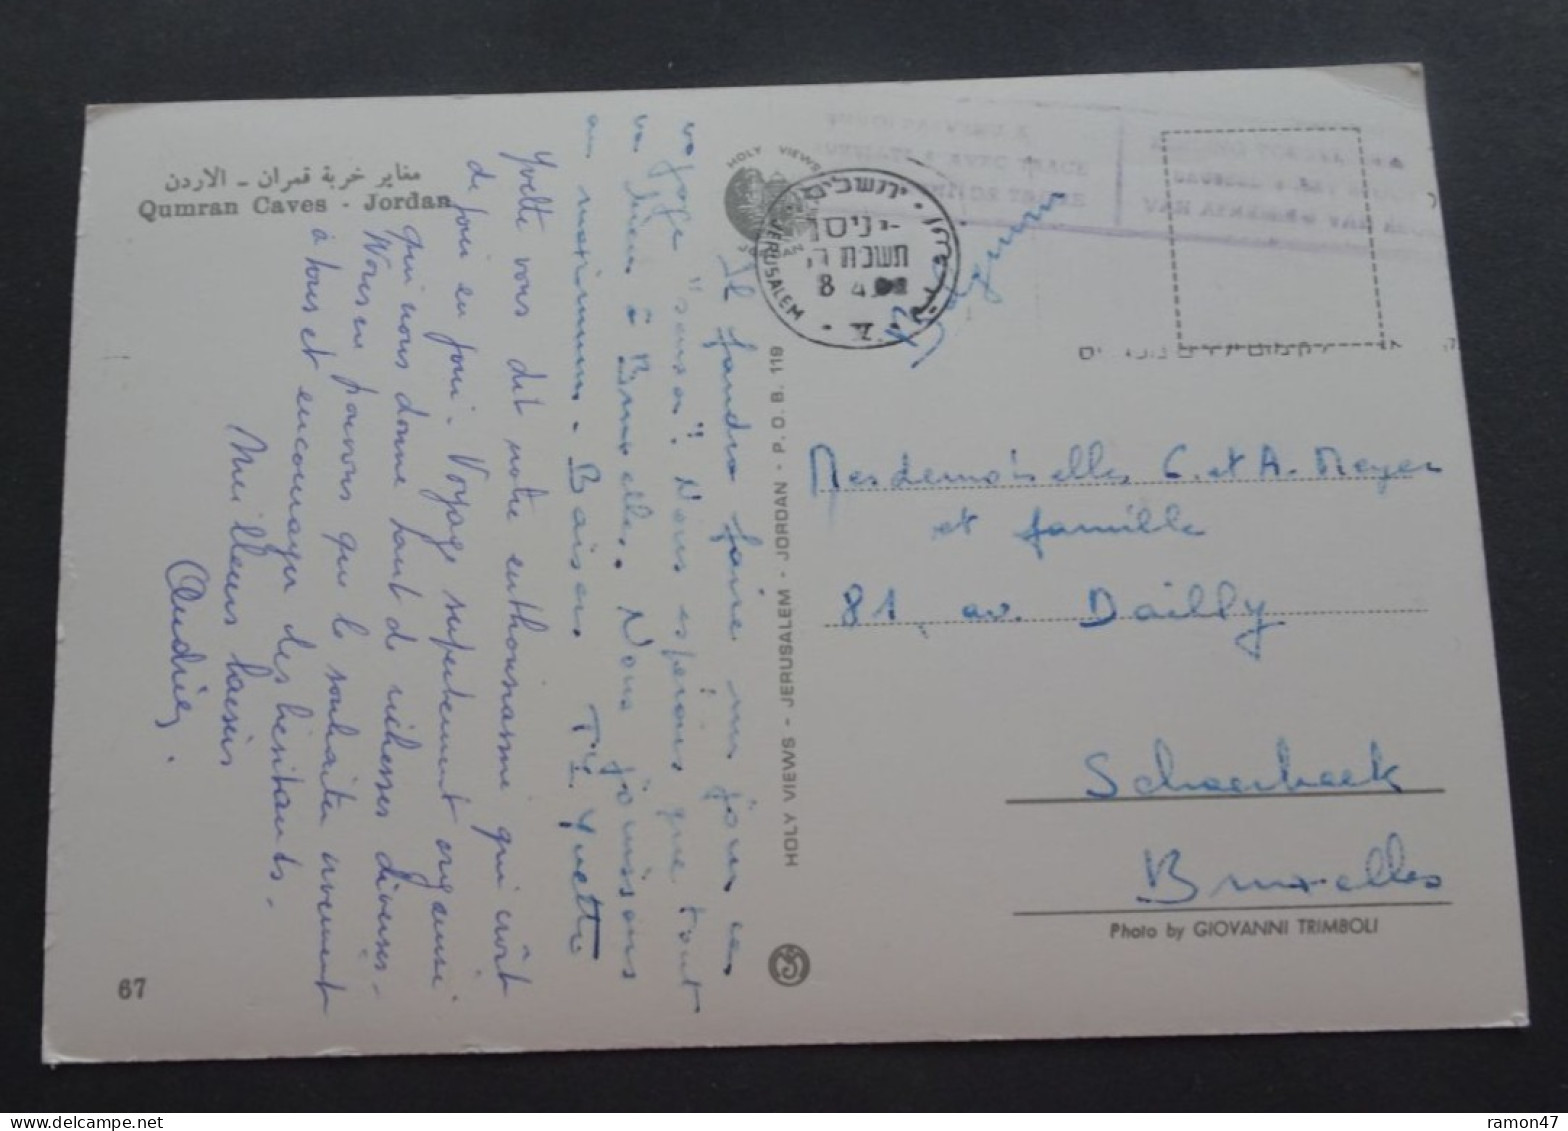 مغاير خربة قمران - الاردن
Qumran Caves - Jordan
Il faudra faire un jour ce
voyage "sensa". Nous espérons que tout
va bien à Bruxelles. Nous jouissons
au maximum. Baisers Yvette
Yvette vous dit notre enthousiasme qui croît
de jour en jour. Voyage superbement organisé
qui nous donne tant de richesses diverses.
Nous en pouvons que le souhaiter vivement
à tous et encourager les hésitants.
Meilleurs baisers
Andrée.
67
HOLY VIEWS
HOLY VIEWS - JERUSALEM - JORDAN - P.O.B. 119
ירושלים
JERUSALEM
ניסן
תשכח
8 4
Mesdemoiselles C. et A. Meyer
et famille
81 av. Dailly
Schaerbeek
Bruxelles
Photo by GIOVANNI TRIMBOLI
ramon47